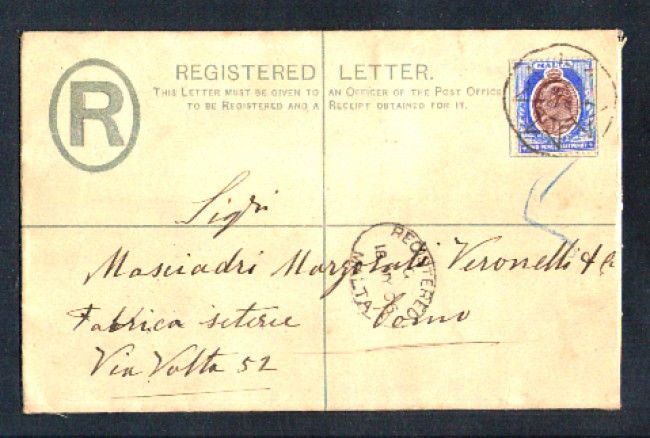 R
REGISTERED LETTER.
THIS LETTER MUST BE GIVEN TO AN OFFICER OF THE POST OFFICE
TO BE REGISTERED AND A RECEIPT OBTAINED FOR IT.
MALTA
Sigri
Masciadri Marzorati Veronelli & C
Fabrica seterie Como
Via Volta 52
REGISTERED
18 MY 06
MALTA